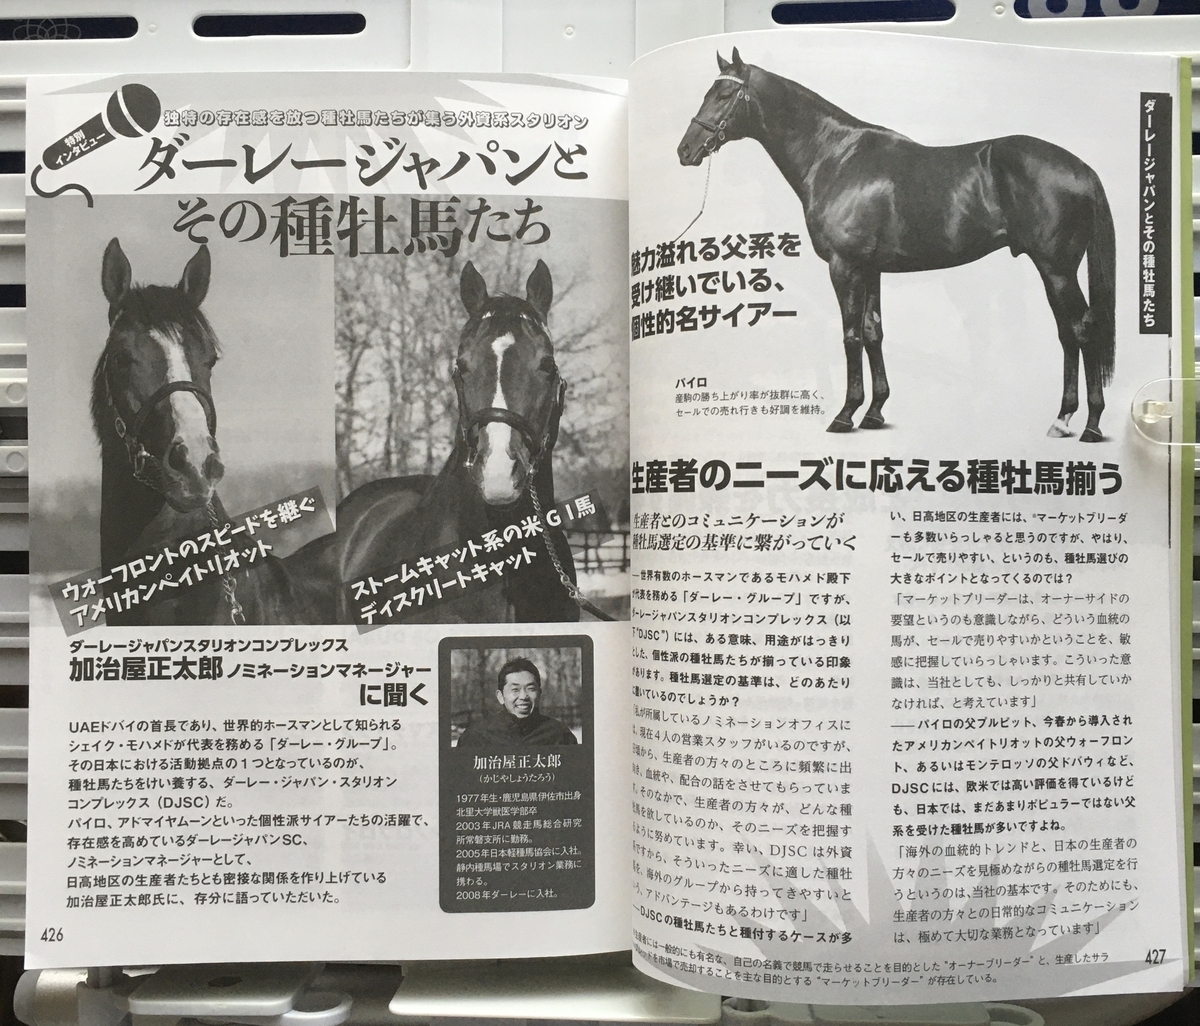 特別
インタビュー
独特の存在感を放つ種牡馬たちが集う外資系スタリオン
ダーレージャパンと
その種牡馬たち
ウォーフロントのスピードを継ぐ
アメリカンペイトリオット
ストームキャット系の米GⅠ馬
ディスクリートキャット
ダーレージャパンスタリオンコンプレックス
加治屋正太郎 ノミネーションマネージャー
に聞く
UAEドバイの首長であり、世界的ホースマンとして知られる
シェイク・モハメドが代表を務める「ダーレー・グループ」。
その日本における活動拠点の1つとなっているのが、
種牡馬たちをけい養する、ダーレー・ジャパン・スタリオン
コンプレックス（DJSC）だ。
パイロ、アドマイヤムーンといった個性派サイアーたちの活躍で、
存在感を高めているダーレージャパンSC、
ノミネーションマネージャーとして、
日高地区の生産者たちとも密接な関係を作り上げている
加治屋正太郎氏に、存分に語っていただいた。
加治屋正太郎
（かじやしょうたろう）
1977年生・鹿児島県伊佐市出身
北里大学獣医学部卒
2003年JRA競走馬総合研究
所常磐支所に勤務。
2005年日本軽種馬協会に入社。
静内種馬場でスタリオン業務に
携わる。
2008年ダーレーに入社。
426
ダーレージャパンとその種牡馬たち
魅力溢れる父系を
受け継いでいる、
個性的名サイアー
パイロ
産駒の勝ち上がり率が抜群に高く、
セールでの売れ行きも好調を維持。
生産者のニーズに応える種牡馬揃う
生産者とのコミュニケーションが
種牡馬選定の基準に繋がっていく
――世界有数のホースマンであるモハメド殿下
が代表を務める「ダーレー・グループ」ですが、
ダーレージャパンスタリオンコンプレックス（以
下"DJSC"）には、ある意味、用途がはっきり
とした、個性派の種牡馬たちが揃っている印象
があります。種牡馬選定の基準は、どのあたり
に置いているのでしょうか？
「私が所属しているノミネーションオフィスに
は、現在4人の営業スタッフがいるのですが、
日頃から、生産者の方々のところに頻繁に出
向き、血統や、配合の話をさせてもらっていま
す。そのなかで、生産者の方々が、どんな種
牡馬を欲しているのか、そのニーズを把握す
るように努めています。幸い、DJSCは外資
系ですから、そういったニーズに適した種牡
馬を、海外のグループから持ってきやすいと
いう、アドバンテージもあるわけです」
――DJSCの種牡馬たちと種付するケースが多
い、日高地区の生産者には、*マーケットブリーダ
ーも多数いらっしゃると思うのですが、やはり、
セールで売りやすい、というのも、種牡馬選びの
大きなポイントとなってくるのでは？
「マーケットブリーダーは、オーナーサイドの
要望というのも意識しながら、どういう血統の
馬が、セールで売りやすいかということを、敏
感に把握していらっしゃいます。こういった意
識は、当社としても、しっかりと共有していか
なければ、と考えています」
――パイロの父プルピット、今春から導入され
たアメリカンペイトリオットの父ウォーフロン
ト、あるいはモンテロッソの父ドバウィなど、
DJSCには、欧米では高い評価を得ているけど
も、日本では、まだあまりポピュラーではない父
系を受けた種牡馬が多いですよね。
「海外の血統的トレンドと、日本の生産者の
方々のニーズを見極めながらの種牡馬選定を行
うというのは、当社の基本です。そのためにも、
生産者の方々との日常的なコミュニケーション
は、極めて大切な業務となっています」
生産者には一般的にも有名な、自己の名義で競馬で走らせることを目的とした"オーナーブリーダー"と、生産したサラ
を市場で売却することを主な目的とする"マーケットブリーダー"が存在している。
427